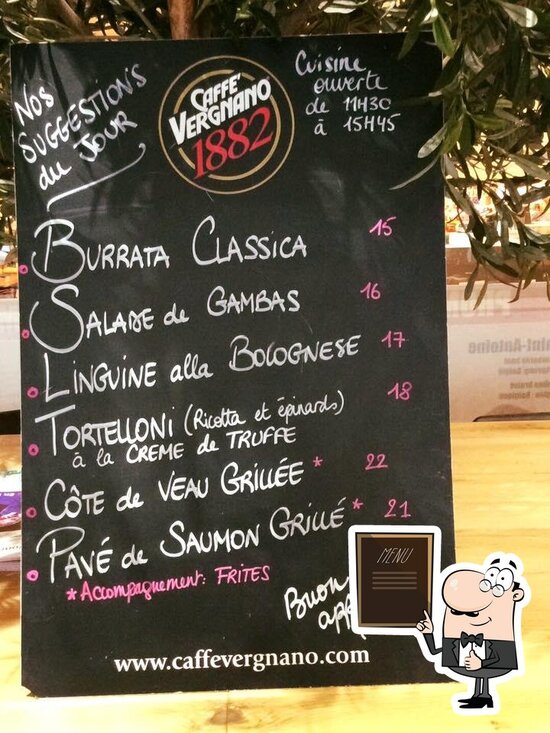 Nos
SUGGESTIONS
du JOUR
CAFFÈ
VERGNANO
1882
Cuisine
ouverte
de 11H30
à 15H45
BURRATA CLASSICA 15
SALADE de GAMBAS 16
LINGUINE alla BOLOGNESE 17
TORTELLONI (Ricotta et épinards) 18
à la CREME de TRUFFE
CÔTE de VEAU GRILLÉE* 22
PAVÉ de SAUMON GRILLÉ* 21
*Accompagnement: FRITES
Buon
app
www.caffevergnano.com
MENU
aint-Antoine